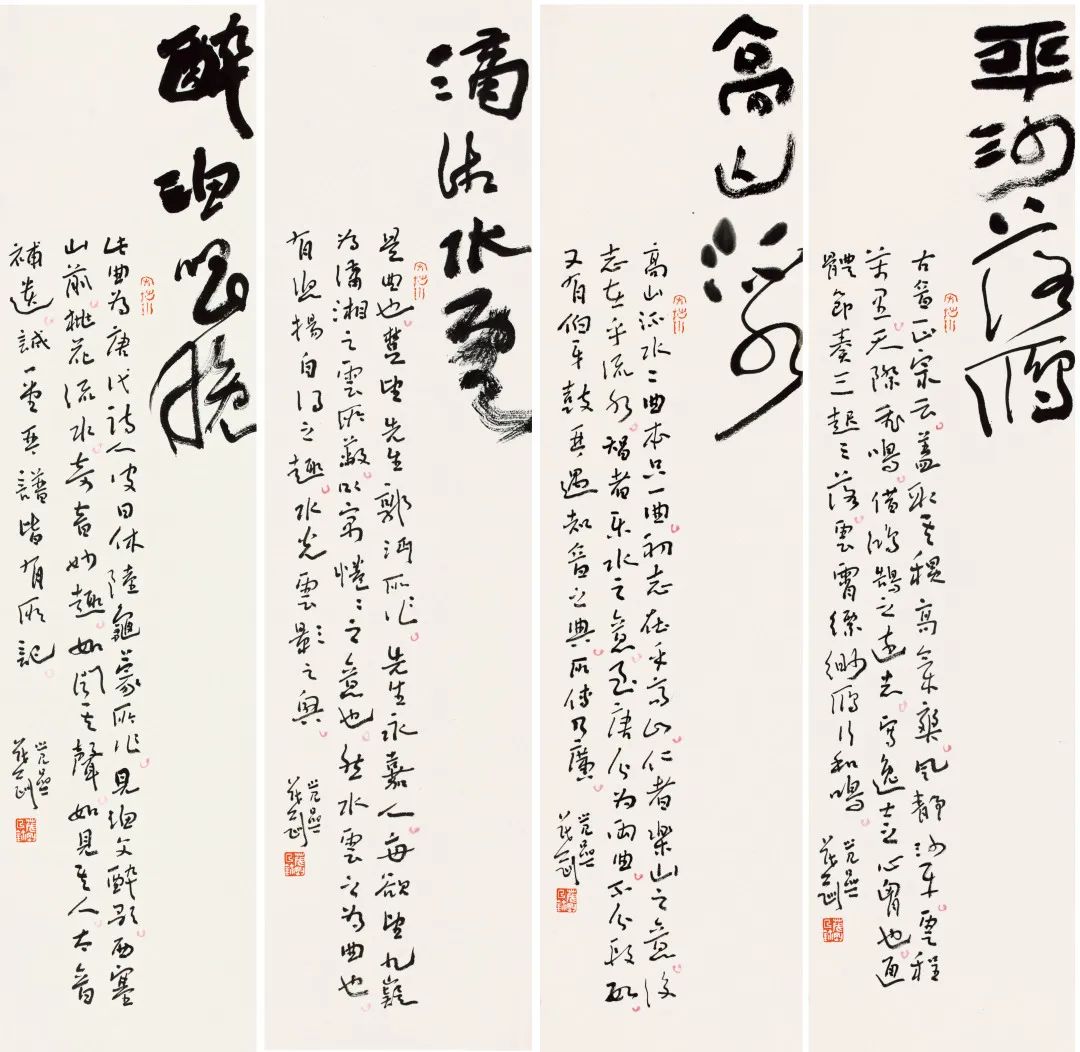 平沙落雁
古音正宗云蓋取其穐高氣爽風靜沙平雲程
萬里天際飛鳴借鴻鵠之遠志寫逸士之心胸也通
體節奏三起三落雲霄縹緲雁行和鳴
高山流水
高山流水二曲本只一曲初志在乎高山仁者樂山之意後
志在乎流水智者樂水之意至唐分为兩曲不分段數
又有伯牙鼓琴遇知音之典所傳乃廣
瀟湘水雲
是曲也楚望先生郭沔所作先生永嘉人每欲望九嶷
為瀟湘之雲所蔽以寓惓〻之意也然水雲之為曲也
有悠揚自得之趣水光雲影之興
醉漁唱晚
此曲為唐代詩人皮日休陸龜蒙所作見漁父醉歌西塞
山前桃花流水奇音妙趣如聞其聲如見其人太音
補遺誠一堂琴譜皆有所記